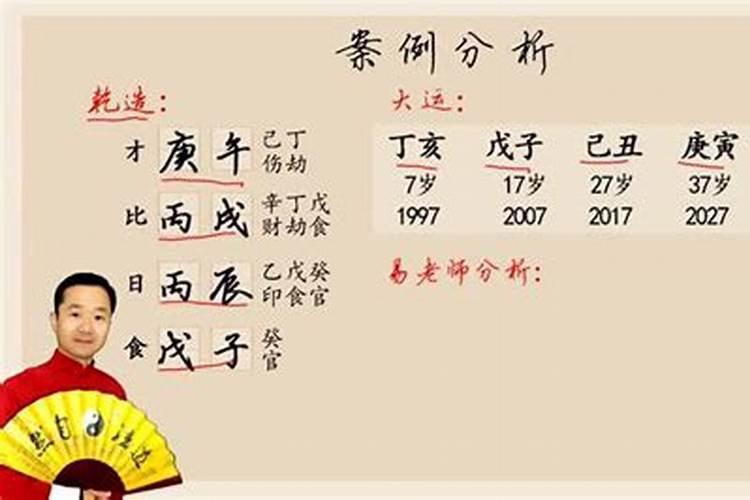 案例分析
乾造：
才 庚 午 己丁
伤劫
比 丙 戌 辛丁戊
财劫食
日 丙 辰 乙戊癸
印食官
食 戊 子 癸
官
大运：
丁亥 戊子 己丑 庚寅
7岁 17岁 27岁 37岁
1997 2007 2017 2027
易老师分析：
然自法道